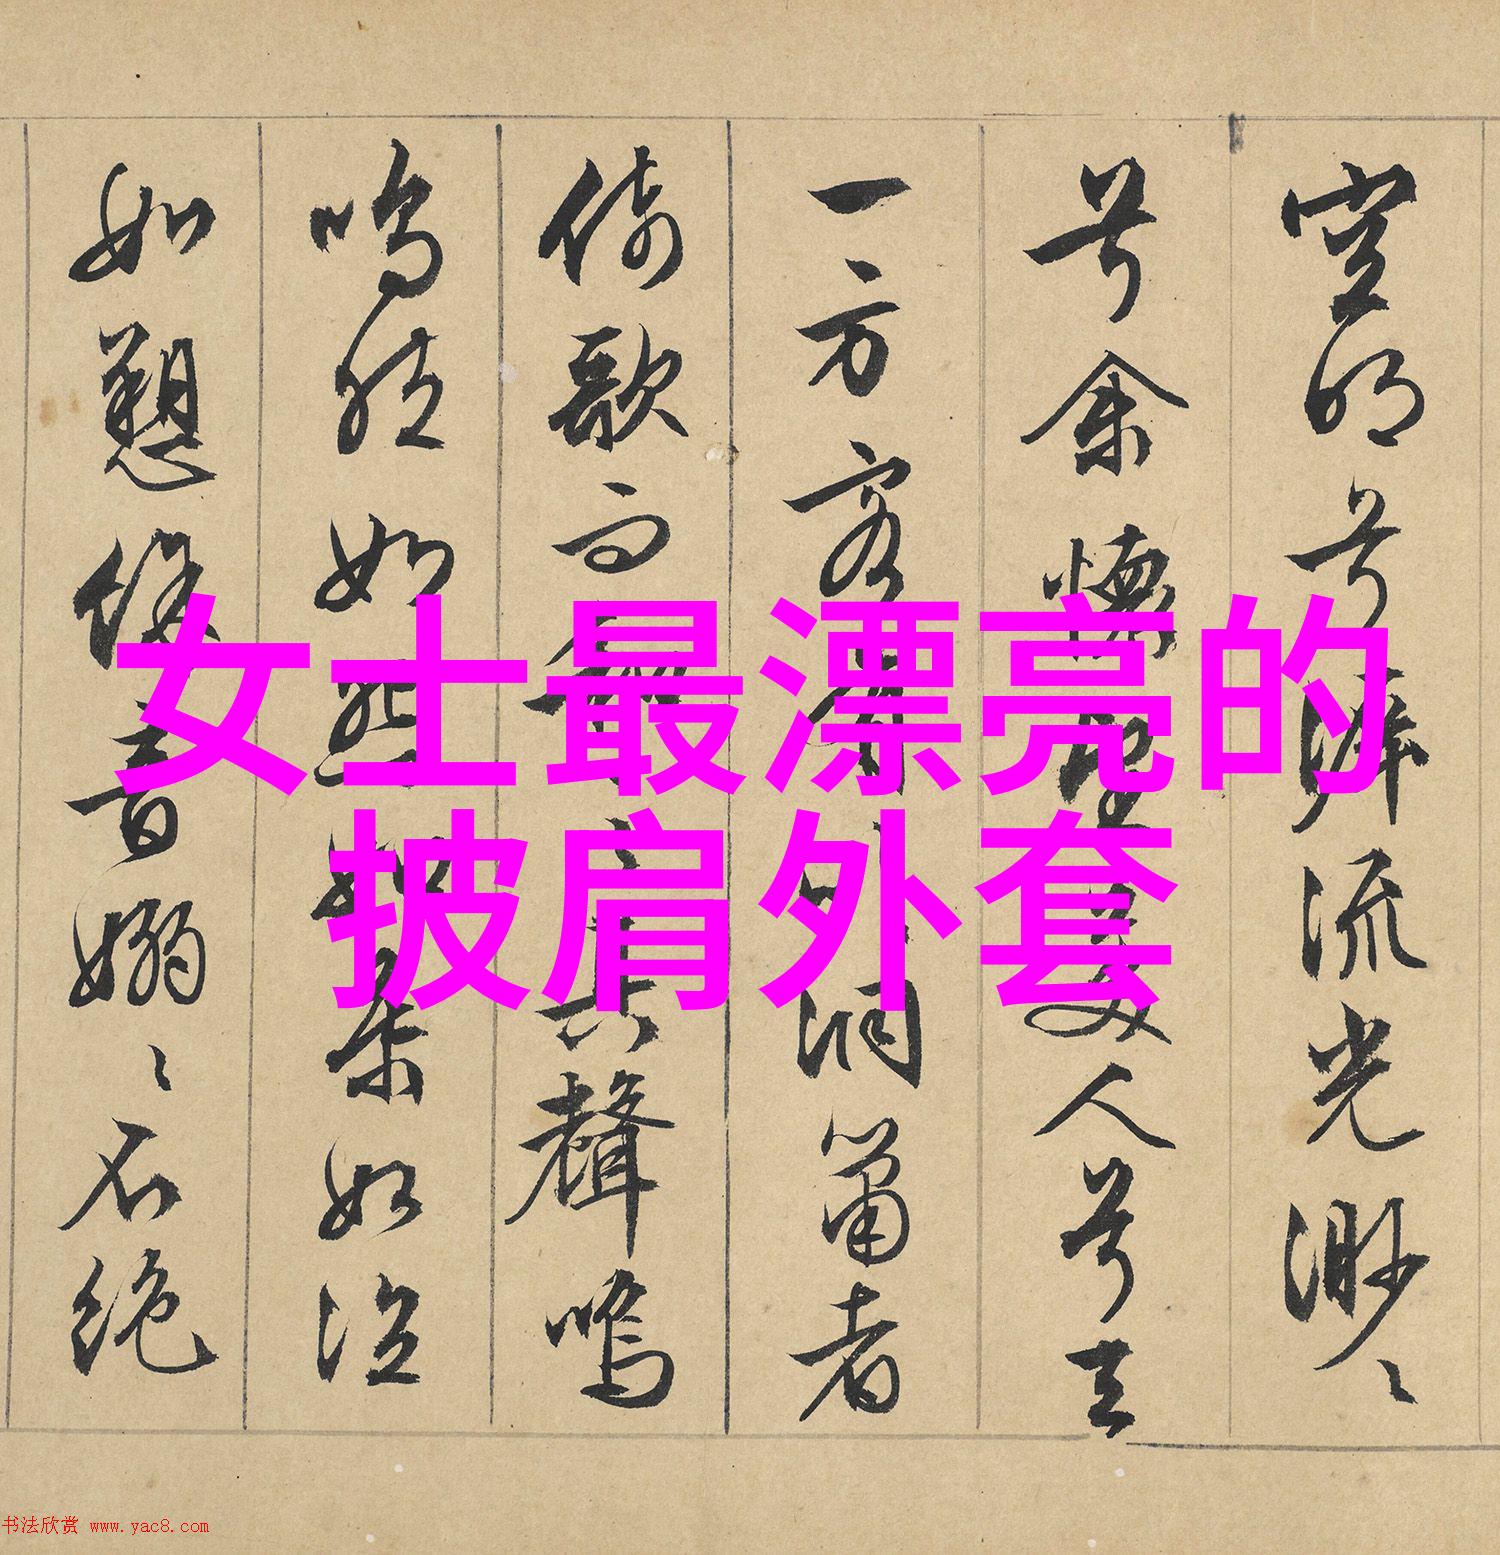 空明兮泝流光渺〻
兮余懷望美人兮天
一方客有吹洞簫者
倚歌而和之其聲嗚
嗚然如怨如慕如泣
如愬餘音嫋〻不絕
女士最漂亮的
披肩外套
书法欣赏 www.yac8.com